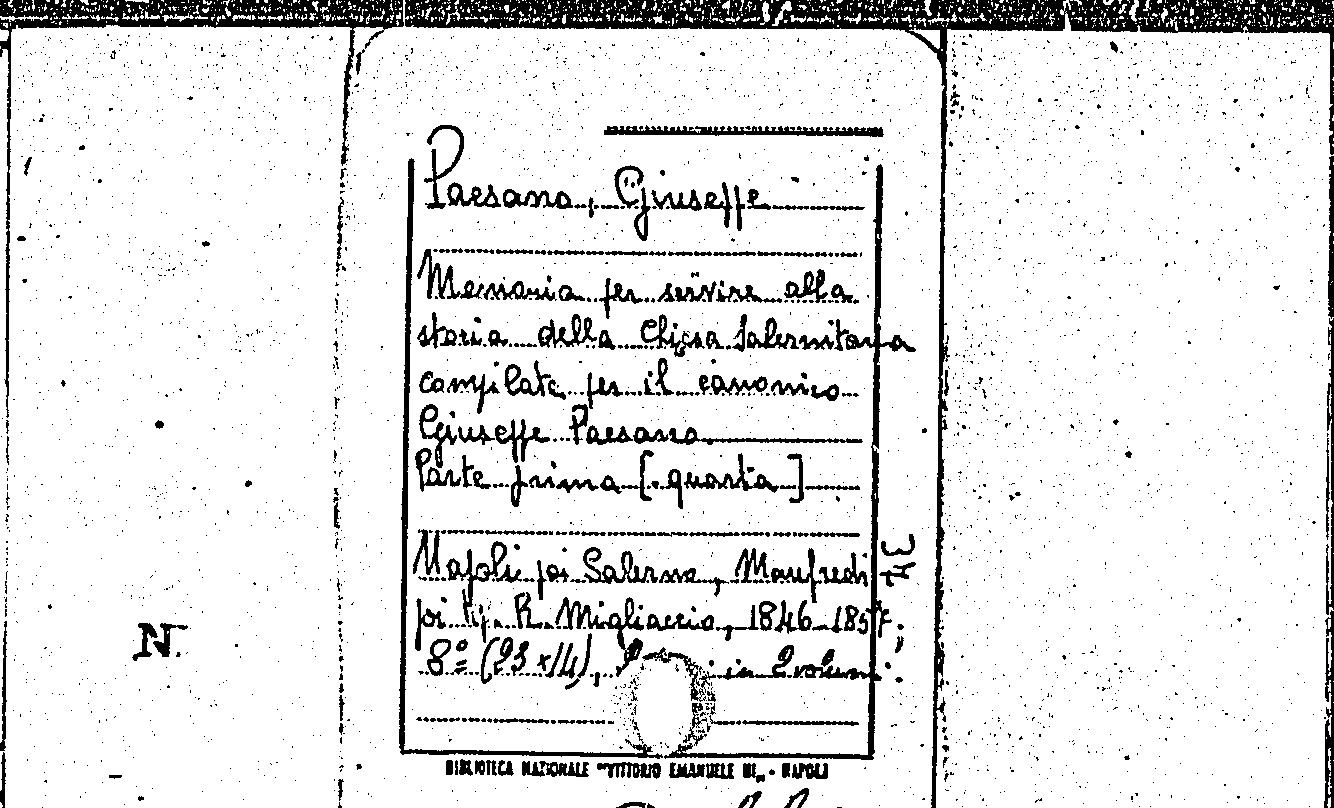 Paesano, Giuseppe
Memorie per servire alla
storia della Chiesa Salernitana
compilate per il canonico
Giuseppe Paesano.
Parte prima [-quarta]
Napoli poi Salerno, Manfredi
poi tip. R. Migliaccio, 1846-1857;
8º (23x14), in 2 volumi.
N.
BIBLIOTECA NAZIONALE "VITTORIO EMANUELE III" - NAPOLI